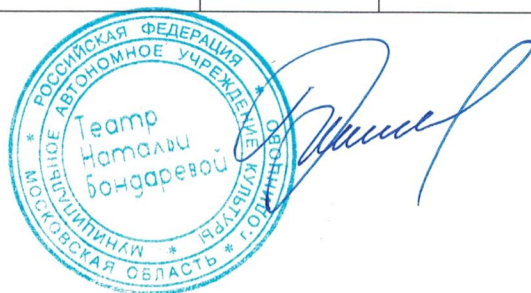 * РОССИЙСКАЯ ФЕДЕРАЦИЯ *
МОСКОВСКАЯ ОБЛАСТЬ * г.ОДИНЦОВО
МУНИЦИПАЛЬНОЕ АВТОНОМНОЕ УЧРЕЖДЕНИЕ КУЛЬТУРЫ *
Театр
Натальи
Бондаревой